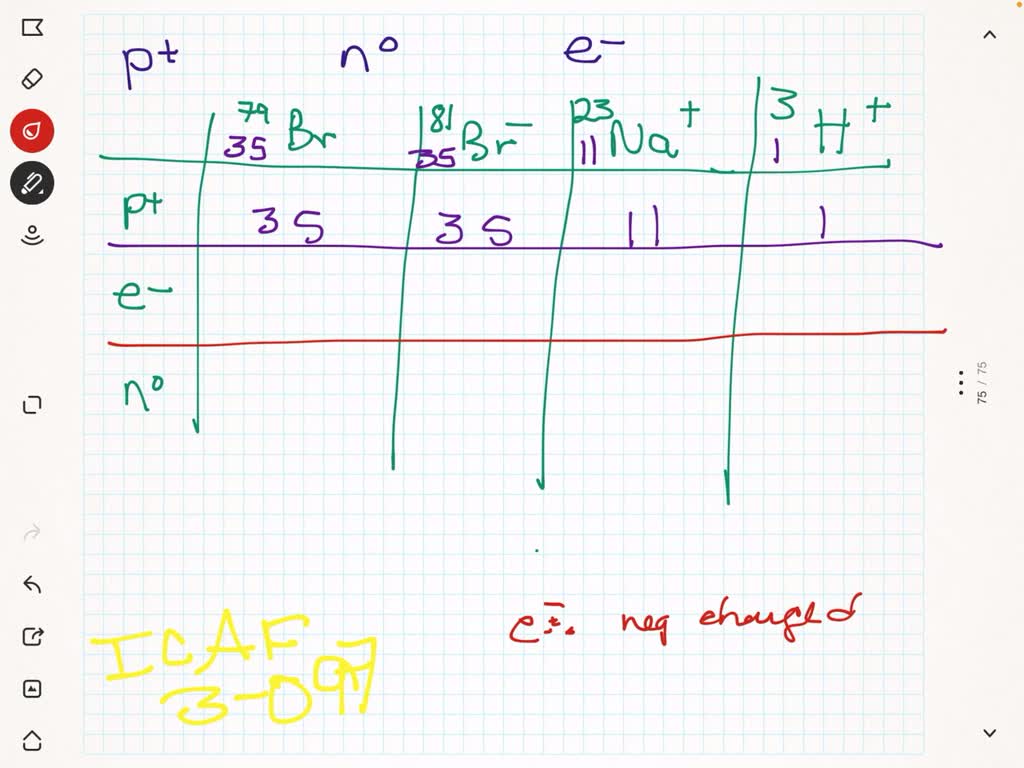 p+ n⁰ e⁻
⁷⁹₃₅Br ⁸¹₃₅Br⁻ ²³₁₁Na⁺ ³₁H⁺
p+ 35 35 11 1
e⁻
n⁰
75 / 75
e⁻: neg charged
ICAF
3-097